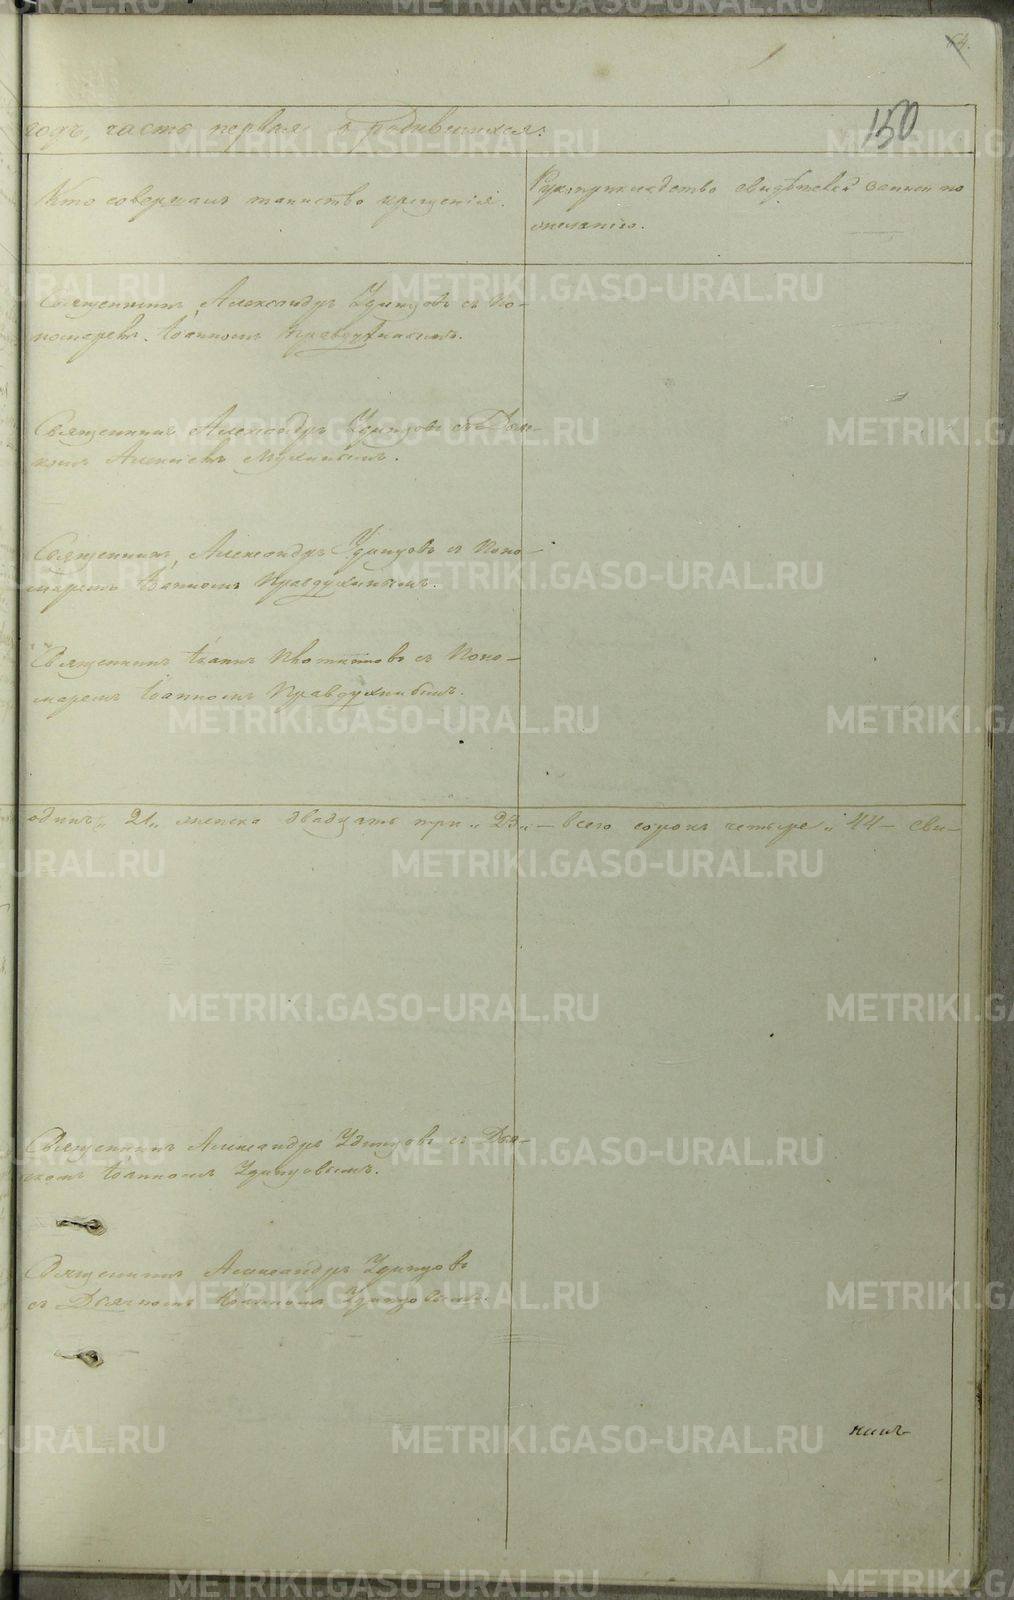 64.
150
годъ, часть первая о родившихся:
Кто совершалъ таинство крещенія.
Рукоприкладство свидѣтелей записи по
желанію.
Священникъ Александръ Удинцовъ съ По-
номаремъ Іоанномъ Правдухинымъ.
Священникъ Александръ Удинцовъ съ Дья-
комъ Алексѣемъ
Священникъ Александръ Удинцовъ съ Поно-
маремъ Іоанномъ Правдухинымъ.
Священникъ Іоаннъ съ Поно-
маремъ Іоанномъ Правдухинымъ.
одинъ „21„ женска двадцать три „23„ — всего сорокъ четыре „44— сви-
Священникъ Александръ Удинцовъ съ Дья-
Іоанномъ Удинцовымъ.
Священникъ Александръ Удинцовъ
съ Іоанномъ Удинцовымъ.
METRIKI.GASO-URAL.RU